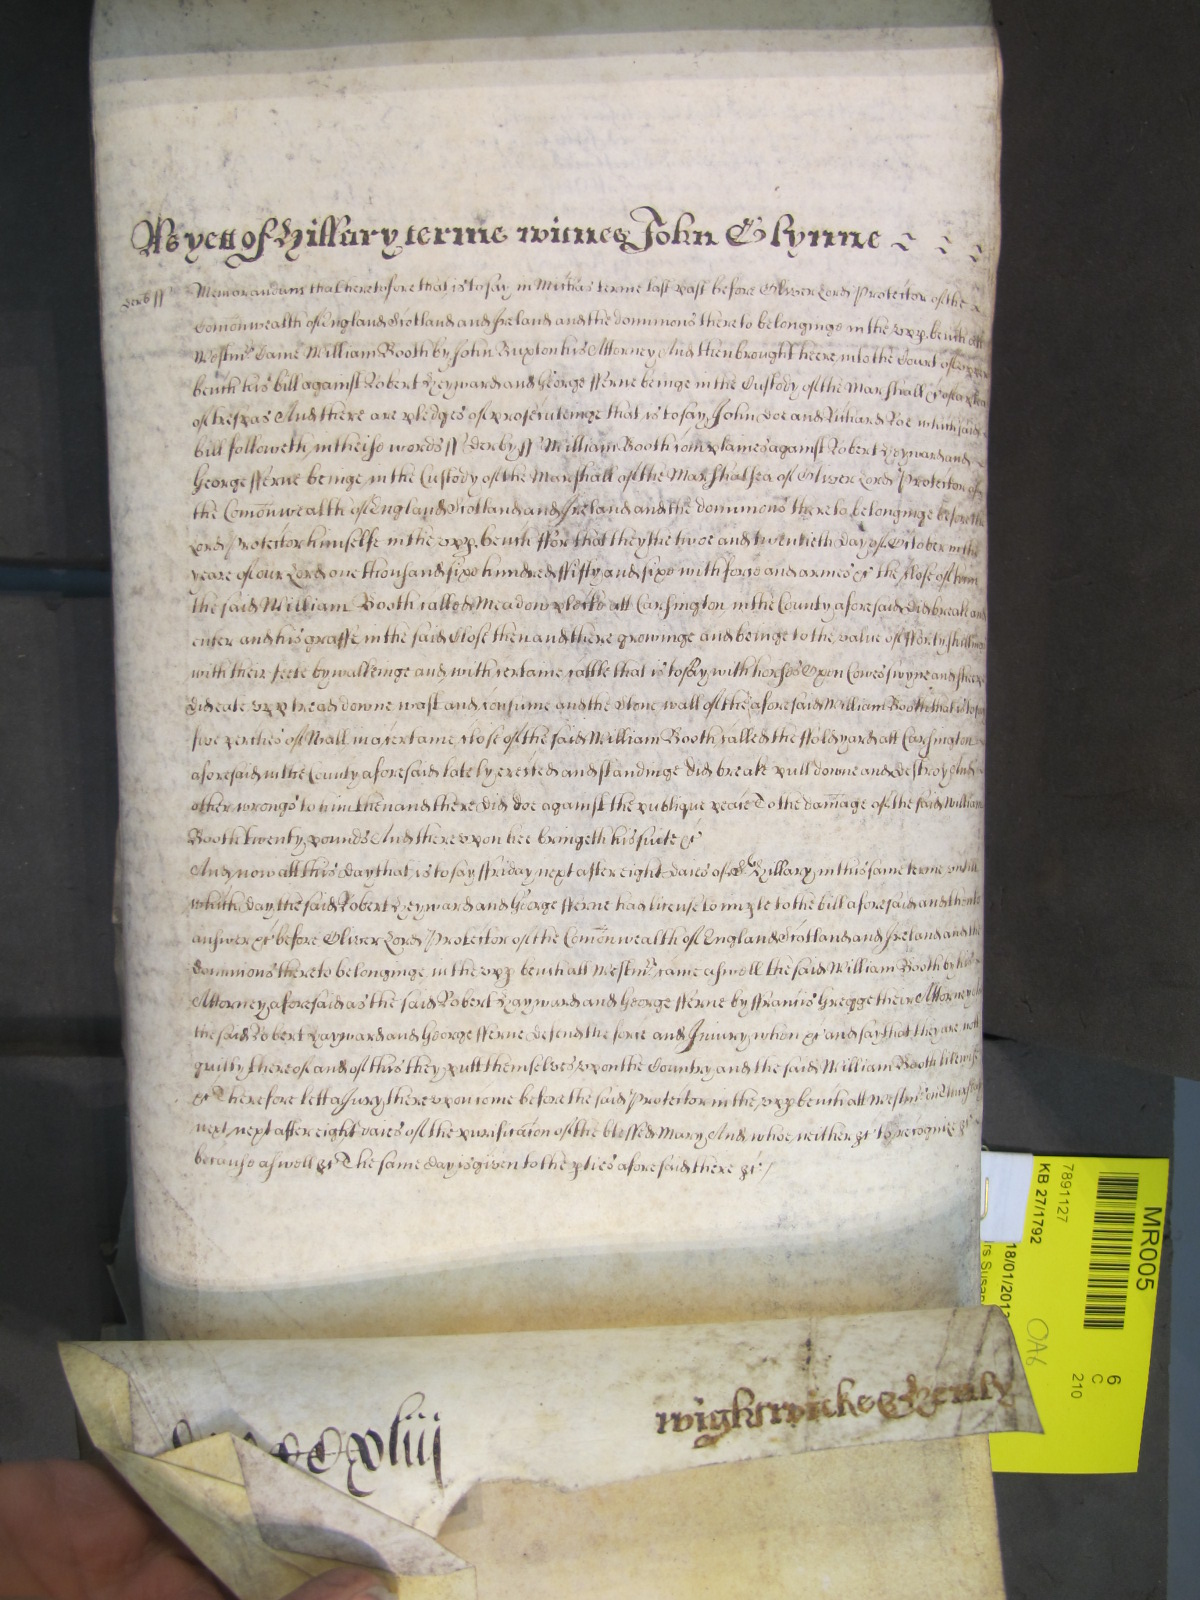 As yett of Hillary terme witnes John Glynne
Derb ss Memorandum that heretofore that is to say in Michas terme last past before Oliver Lord Protector of the
Comonwealth of England Scotland and Ireland and the dominions thereto belonginge in the upp. bench att
Westmr Came William Booth by John Buxton his Attorney And then brought heere into the Court of upper
bench his bill against Robert Heyward and George fferne beinge in the Custody of the Marshall &c of a plea
of trespas And there are pledges of prosecuteinge that is to say John Doe and Richard Roe which said
bill followeth in theise words ss Derby ss William Booth complaines against Robert Heyward and
George fferne beinge in the Custody of the Marshall of the Marshalsea of Oliver Lord Protector of
the Comonwealth of England Scotland and Ireland and the dominions thereto belonginge before the
Lord Protector himselfe in the upp. bench ffor that they the twoe and twentieth day of October in the
yeare of our Lord one thousand sixe hundred ffifty and sixe with force and armes &c the close of him
the said William Booth called Meadow at Carsington in the County aforesaid did breake and
enter and his grasse in the said Close then and there growinge and beinge to the value of fforty shillings
with their feete by walkeinge and with certaine cattle that is to say with horses Oxen Cowes swyne and sheepe
did eate upp tread downe wast and consume and the stone wall of the aforesaid William Booth that is to say
five perches of Wall in a certaine close of the said William Booth called the ffoldyard att Carsington
aforesaid in the County aforesaid lately erected and standinge did breake pull downe and destroy And
other wrongs to him then and there did doe against the publique peace To the damage of the said William
Booth twenty pounds And thereupon hee bringeth his suite &c
And now att this day that is to say ffriday next after eight daies of St Hillary in this same terme untill
which day the said Robert Heyward and George fferne had license to imple to the bill aforesaid and then to
answer &c before Oliver Lord Protector of the Comonwealth of England Scotland and Ireland and the
dominions thereto belonginge in the upp bench att Westmr came aswell the said William Booth by his
Attorney aforesaid as the said Robert Hayward and George fferne by ffrancis Gregge their Attorney And
the said Robert Hayward and George fferne defend the force and Injury when &c and say that they are nott
guilty thereof and of this they putt themselves upon the Country and the said William Booth likewise
&c Therefore lett a Jury thereupon come before the said Protector in the upp bench att Westmr on
next next after eight daies of the purificacion of the blessed Mary And whoe neither &c to recognize &c
because aswell &c The same day is given to the pties aforesaid there &c /
wightwicke & Henly
xliij
MR005
6
C
210
7891127
KB 27/1792
18/01/2013
OA6